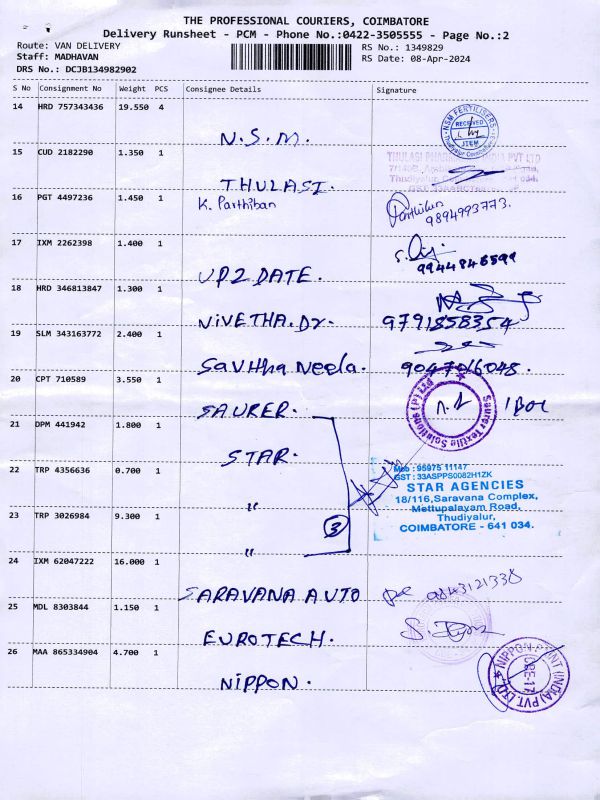 THE PROFESSIONAL COURIERS, COIMBATORE
Delivery Runsheet - PCM - Phone No.:0422-3505555 - Page No.:2
Route: VAN DELIVERY
RS No.: 1349829
Staff: MADHAVAN
RS Date: 08-Apr-2024
DRS No.: DCJB134982902
S No Consignment No Weight PCS Consignee Details Signature
14 HRD 757343436 19.550 4
N.S.M.
NSM FERTILISERS
RECEIVED
ITEM
15 CUD 2182290 1.350 1
THULASI.
THULASI PVT LTD
16 PGT 4497236 1.450 1
K. Parthiban
Parthiban
9894993773.
17 IXM 2262398 1.400 1
UP2DATE.
9944846599
18 HRD 346813847 1.300 1
NIVETHA.Dr.
9791858354
19 SLM 343163772 2.400 1
Savitha Neela.
9047016048.
20 CPT 710589 3.550 1
SAURER.
Saurer Textile Solutions (P) Ltd
1 Box
21 DPM 441942 1.800 1
STAR.
22 TRP 4356636 0.700 1
"
Mob : 95975 11147
GST : 33ASPPS0082H1ZK
STAR AGENCIES
18/116,Saravana Complex,
Mettupalayam Road,
Thudiyalur,
COIMBATORE - 641 034.
23 TRP 3026984 9.300 1
"
3
24 IXM 62047222 16.000 1
SARAVANA AUTO
9843121338
25 MDL 8303844 1.150 1
EUROTECH.
26 MAA 865334904 4.700 1
NIPPON.
NIPPON PAINT (INDIA) PVT. LTD.